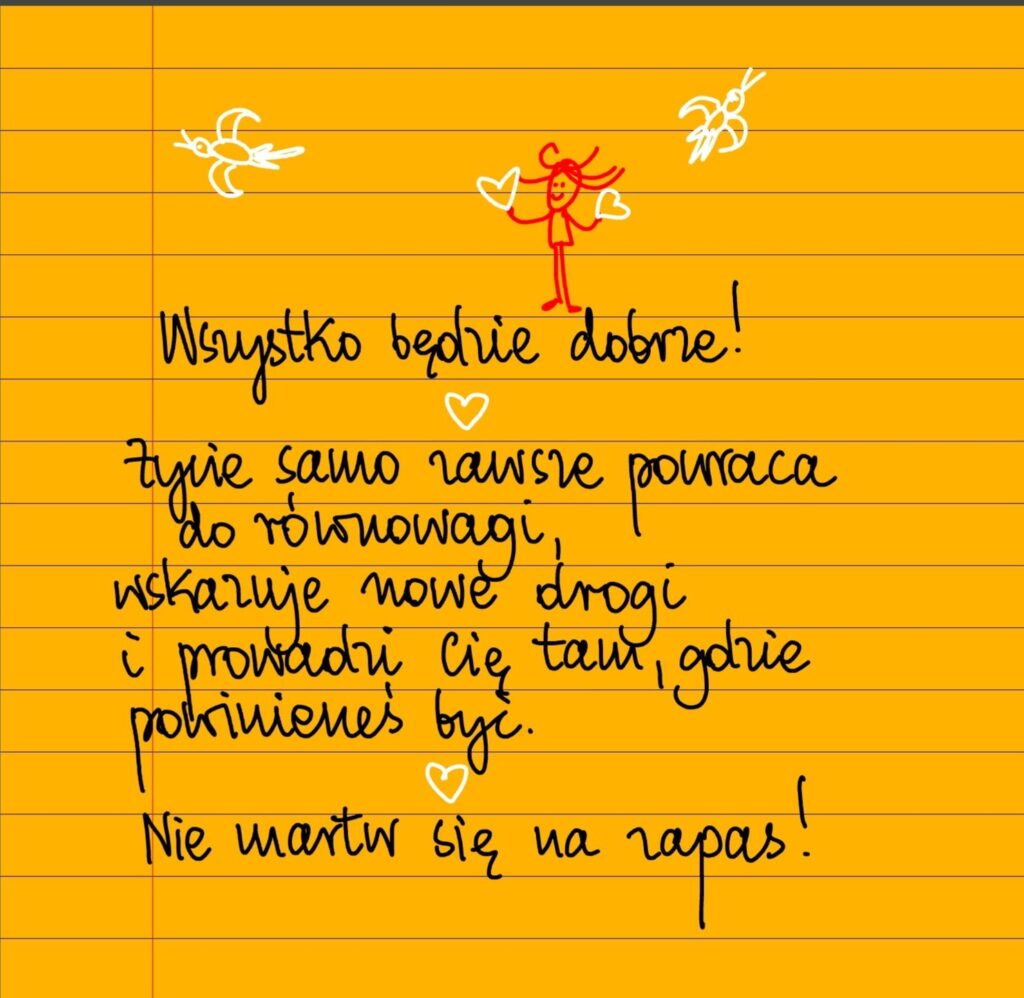 Wszystko będzie dobrze!
Życie samo zawsze powraca
do równowagi,
wskazuje nowe drogi
i prowadzi Cię tam, gdzie
powinieneś być.
Nie martw się na zapas!